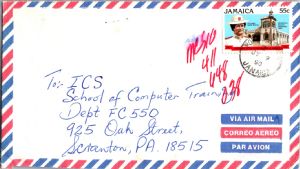 JAMAICA 55c
JAMAICA
To:- ICS
School of Computer Training
Dept FC550
925 Oak Street,
Scranton, PA. 18515
411
648
238
VIA AIR MAIL
CORREO AEREO
PAR AVION